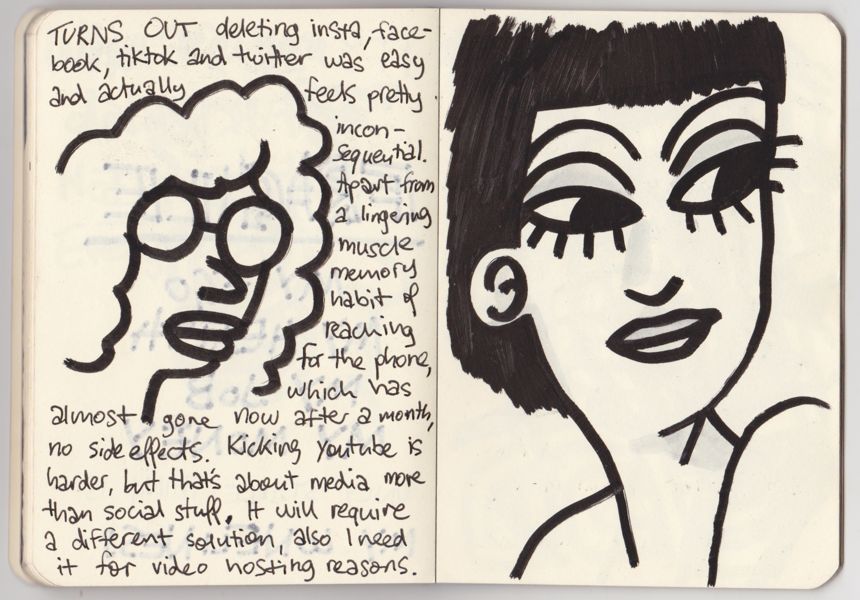 TURNS OUT deleting insta, face-
book, tiktok and twitter was easy
and actually feels pretty
incon-
sequential.
Apart from
a lingering
muscle
memory
habit of
reaching
for the phone,
which has
almost gone now after a month,
no side effects. Kicking youtube is
harder, but that's about media more
than social stuff. It will require
a different solution, also I need
it for video hosting reasons.